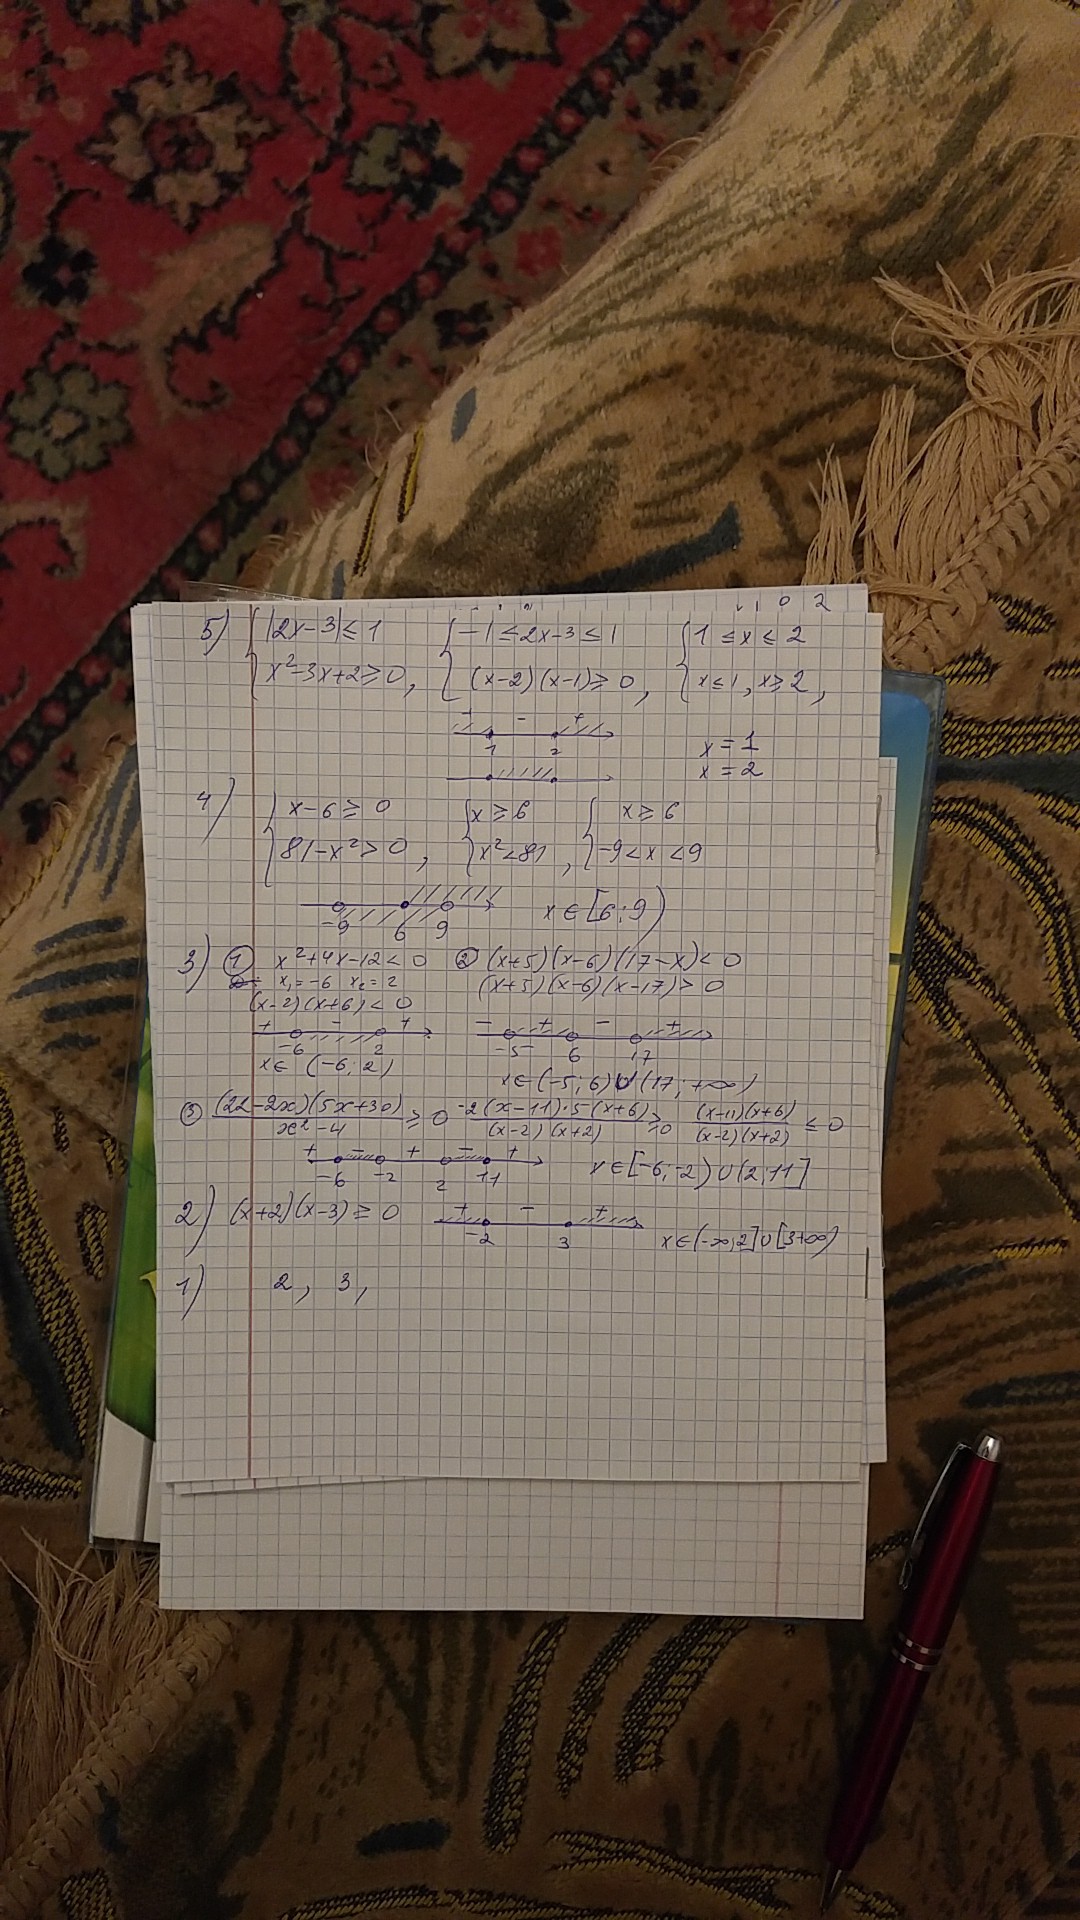 0 2
5) { |2x-3| ≤ 1 { -1 ≤ 2x-3 ≤ 1 { 1 ≤ x ≤ 2
x²-3x+2 ≥ 0, (x-2)(x-1) ≥ 0, x ≤ 1, x ≥ 2,
+ - +
1 2
x = 1
x = 2
4) { x-6 ≥ 0 { x ≥ 6 { x ≥ 6
81-x² > 0, x² < 81, -9 < x < 9
-9 6 9 x ∈ [6; 9)
3) ① x²+4x-12 < 0 ② (x+5)(x-6)(17-x) < 0
x₁ = -6 x₂ = 2 (x+5)(x-6)(x-17) > 0
(x-2)(x+6) < 0
+ - + - + - +
-6 2 -5 6 17
x ∈ (-6; 2) x ∈ (-5; 6) ∪ (17; +∞)
③ (22-2x)(5x+30)/(x²-4) ≥ 0 -2(x-11)·5(x+6)/((x-2)(x+2)) ≥ 0 (x-11)(x+6)/((x-2)(x+2)) ≤ 0
+ - + - +
-6 -2 2 11 x ∈ [-6; -2) ∪ (2; 11]
2) (x+2)(x-3) ≥ 0 + - +
-2 3 x ∈ (-∞; 2] ∪ [3 +∞)
1) 2, 3,